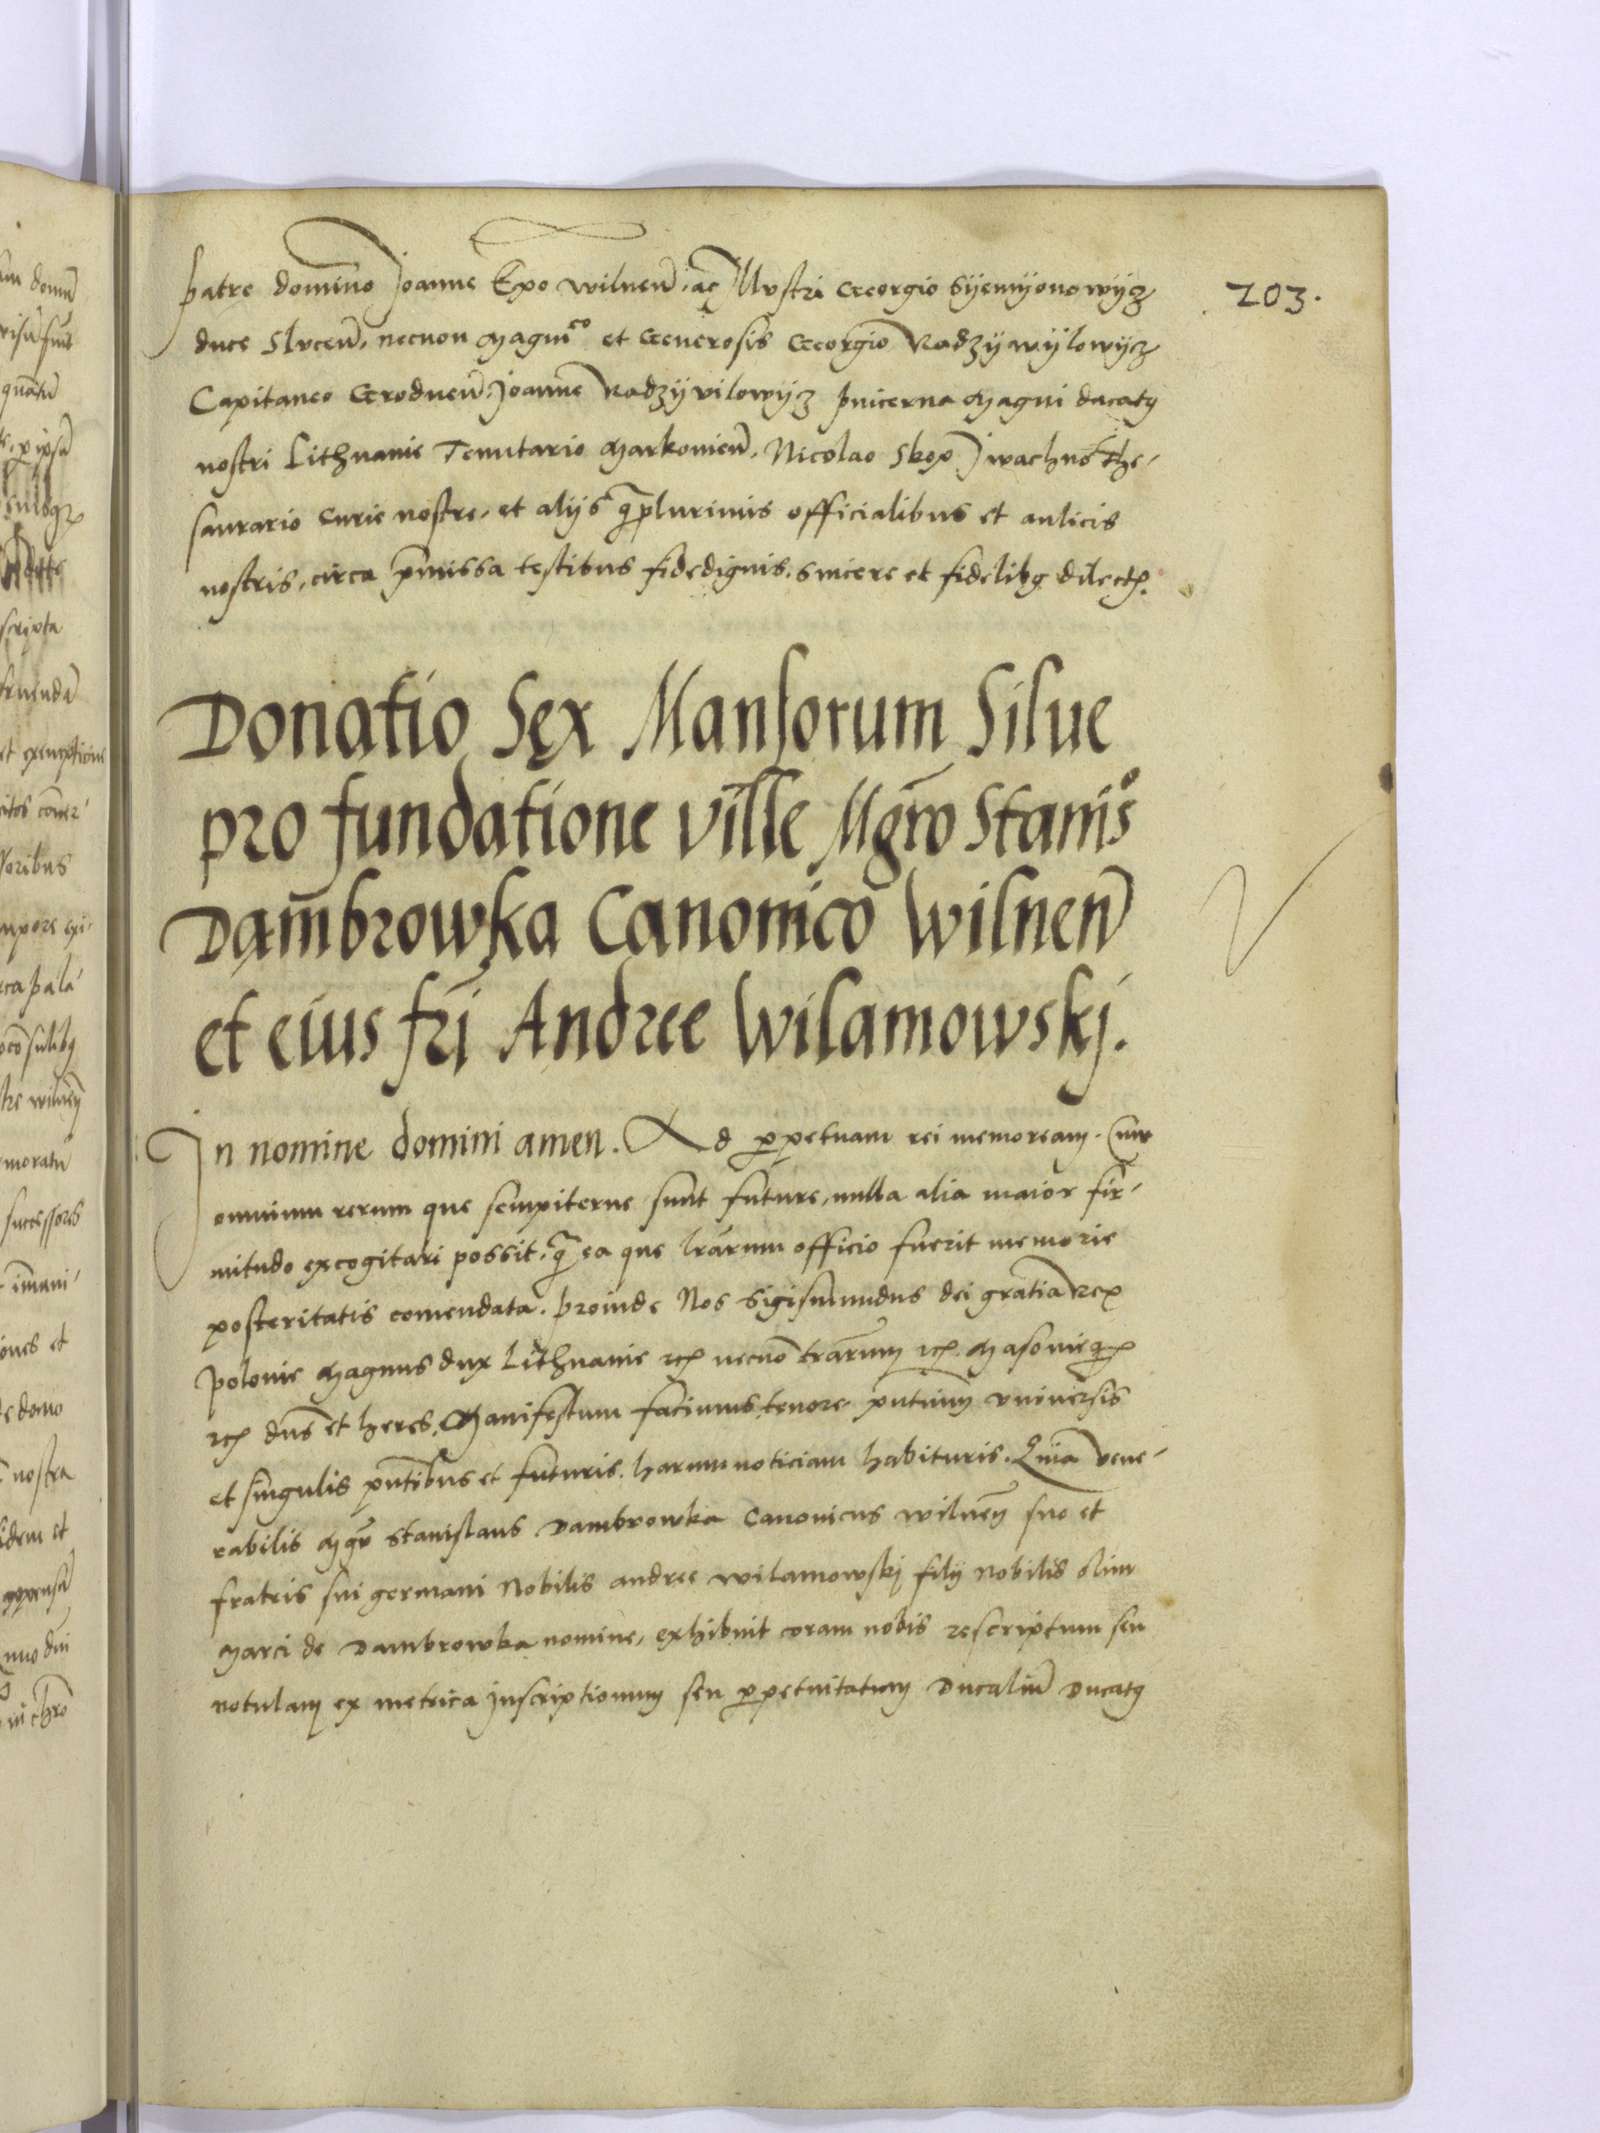 203.
patre domino Joanne Epo wilnen̄. ac Illustri Georgio Syemyonowycz
duce Slucen̄. necnon Magnico et Generosis Georgio Radzywylowycz
Capitaneo Grodnen̄. Joanne Radzyvilowycz pincerna Magni ducatꝰ
nostri Lithuanie Tenutario Markowien̄. Nicolao Skop Jwachno The-
saurario curie nostre, et alijs q̄plurimis officialibus et aulicis
nostris, circa p̄missa testibus fidedignis. sincere et fidelibꝰ dilectꝭ.
Donatio Sex Mansorum Silue
pro fundatione ville Mgr̄o Stanis°
Dambrowka Canonico Wilnen̄
et eius fr̄i Andree Wilamowskj.
In nomine domini amen. Ad ꝑpetuam rei memoream. Cum
omnium rerum que sempiterne sunt future, nulla alia maior fir-
mitudo excogitari possit. q̄ ea que l̄rarum officio fuerit memorie
posteritatis comendata. proinde Nos Sigismundus dei gratia Rex
polonie Magnus dux Lithuanie rcꝭ necnō terrarum rcꝭ. Masovieqꝫ
rcꝭ dn̄s et heres. Manifestum facimus tenore pn̄tium vniversis
et singulis pn̄tibus et futuris. harum noticiam habituris. Quia vene-
rabilis Mgr̄ Stanislaus Dambrowka Canonicus wilnen̄ suo et
fratris sui germani Nobilis andree wilamowskj filij nobilis olim
Marci de Dambrowka nomine, exhibuit coram nobis rescriptum seu
notulam ex metrica jnscriptionum seu ꝑpetuitatum Ducaliū Ducatꝰ